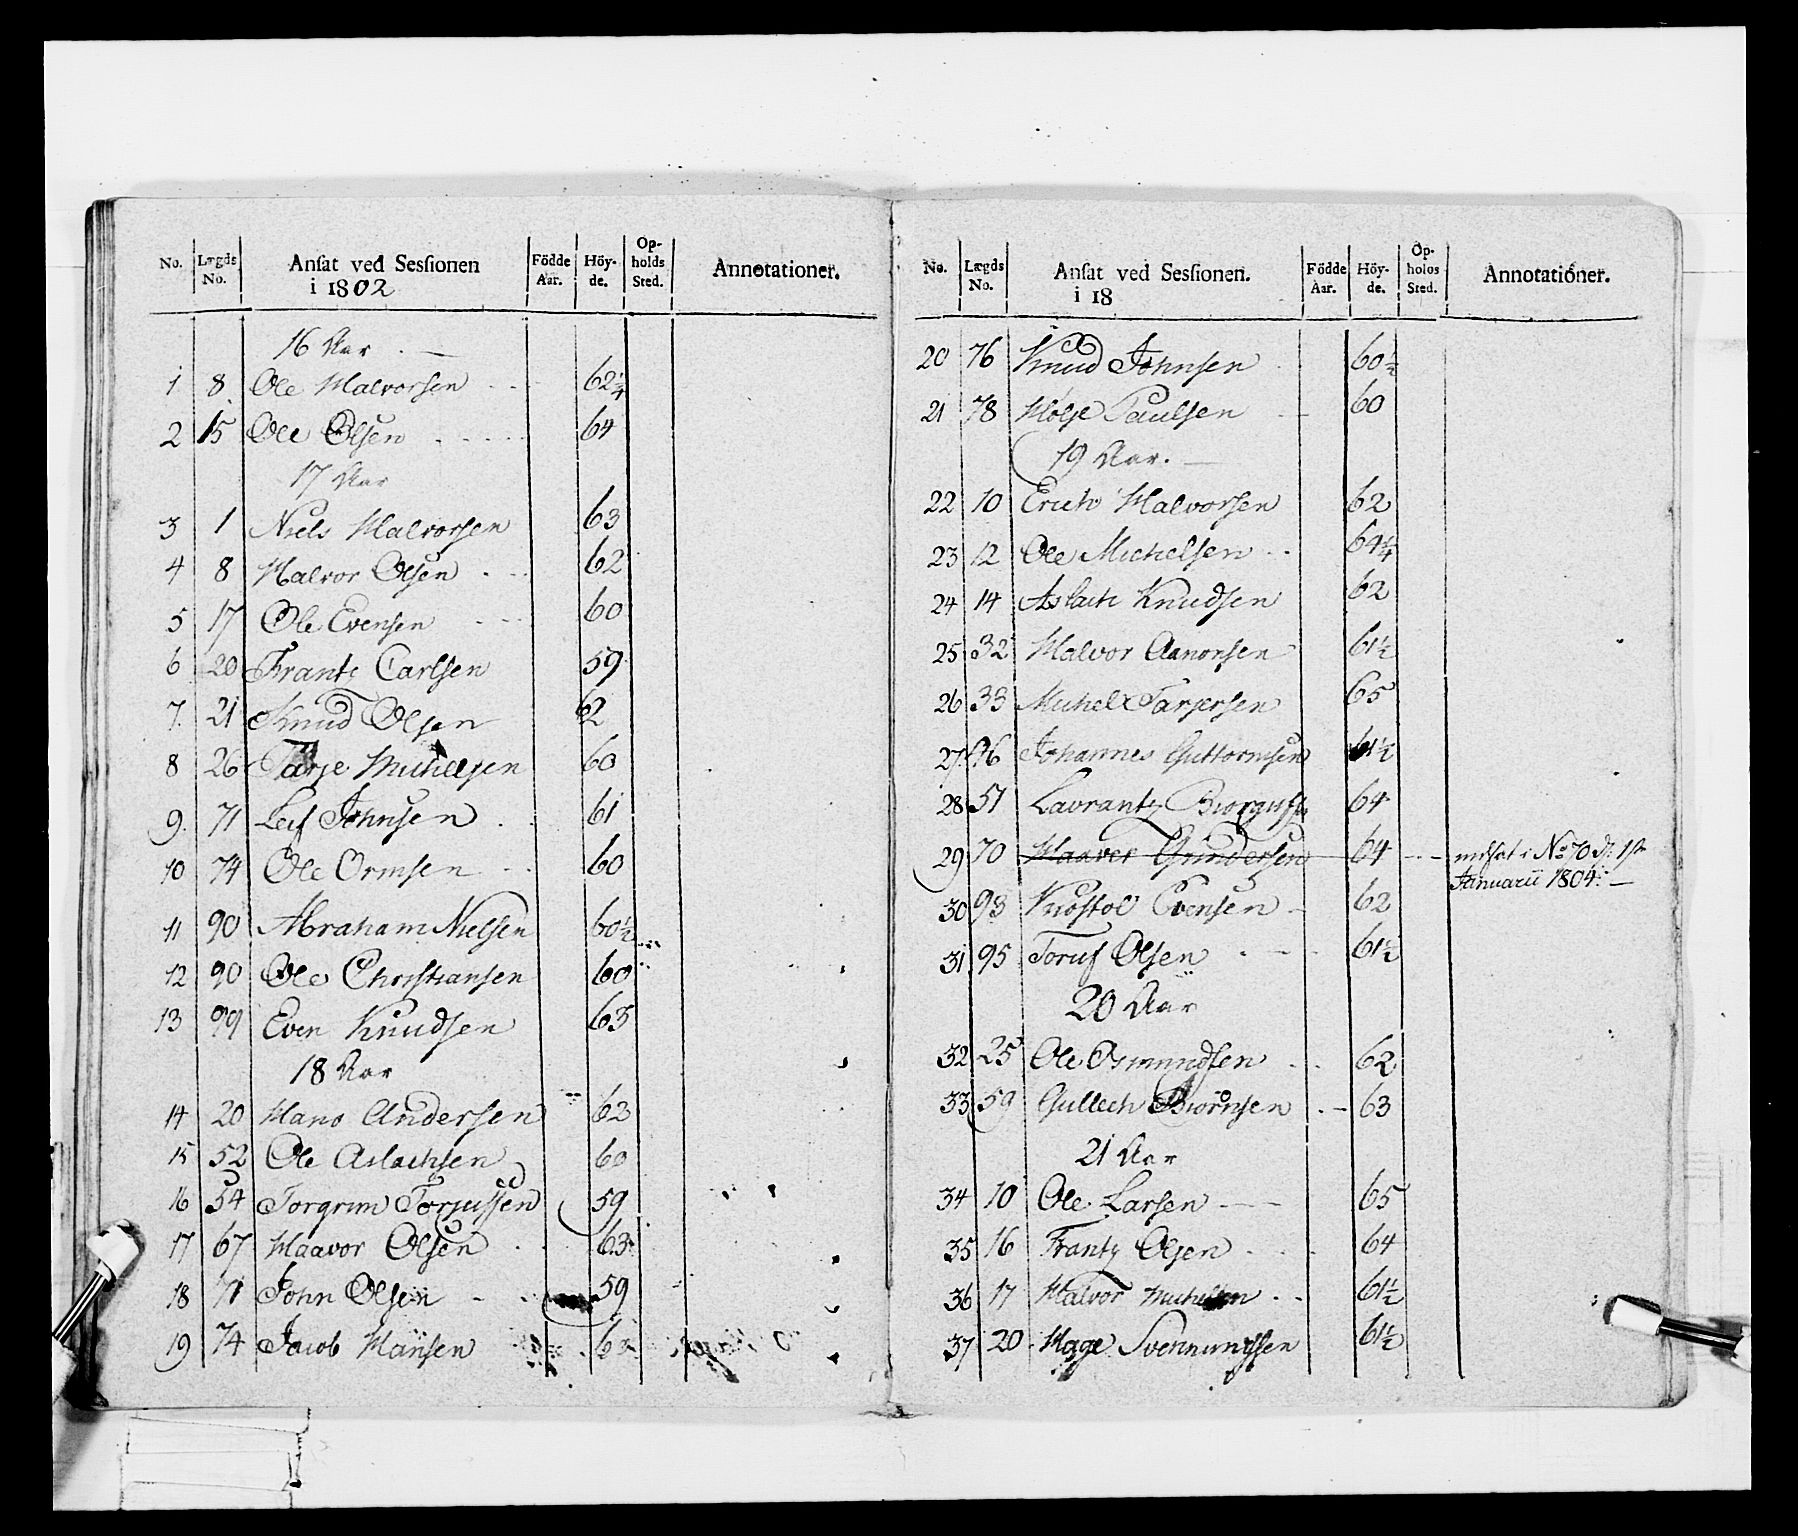 No. Lægds No. Ansat ved Sessionen i 1802 Födde Aar. Höyde. Opholds Sted. Annotationer.
16 Aar
1 8 Ole Halvorsen 62¼
2 15 Ole Olsen 64
17 Aar
3 1 Niels Halvorsen 63
4 8 Halvor Olsen 62
5 17 Ole Evensen 60
6 20 Frantz Carlsen 59
7. 21 Knud Olsen 62
8 26 Tarje Michelsen 60
9. 71 Leif Johnsen 61
10 74 Ole Ormsen 60
11 90 Abraham Nielsen 60½
12 90 Ole Christiansen 60
13 99 Even Knudsen 63
18 Aar
14 20 Hans Andersen 62
15 52 Ole Aslachsen 60
16 54 Torgrim Torjussen 59
17 67 Haavor Olsen 63
18 71 John Olsen 59
19 74 Jacob Hansen
No. Lægds No. Ansat ved Sessionen. i 18 Födde Aar. Höyde. Opholds Sted. Annotationer.
20 76 Knud Johnsen 60½
21 78 Hølje Paulsen 60
19 Aar.
22 10 Erich Halvorsen 62
23 12 Ole Michelsen 64¼
24 14 Aslach Knudsen 62
25 32 Halvor Aanonsen 61½
26 33 Michel Tarjersen 65
27 46 Johannes Guttormsen 61½
28 51 Lavrantz 64
29 70 Haaver Gundersen 64 indsat i No 70 d: 1ste
Januarii 1804.
30 93 Knøstol Evensen 62
31 95 Toruf Olsen 61½
20 Aar
32 25 Ole Osmundsen 62
33 59 Gullech Biørnsen 63
21 Aar
34 10 Ole Larsen 65
35 16 Frantz Olsen 64
36 17 Halvor Michelsen 61½
37 20 Hage Svennungsen 61½